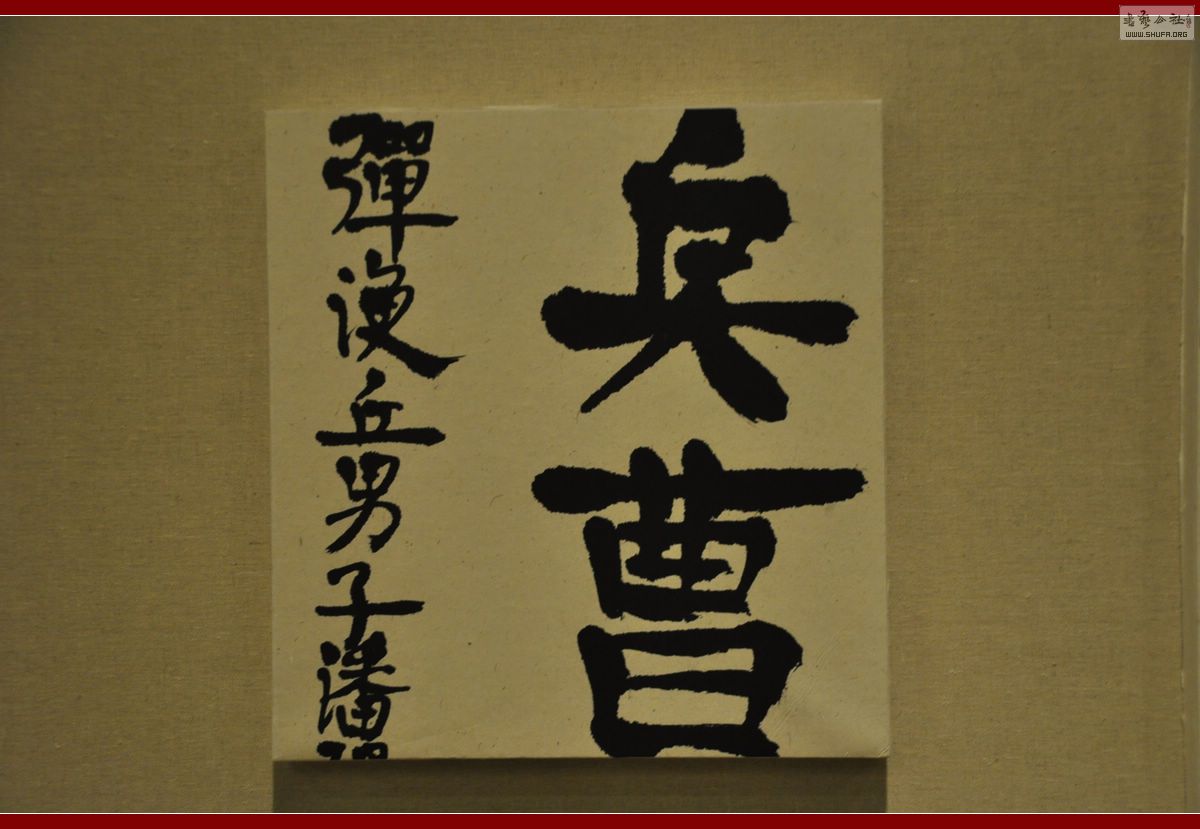 兵曹
彈溲丘男子潘
書藝公社
WWW.SHUFA.ORG